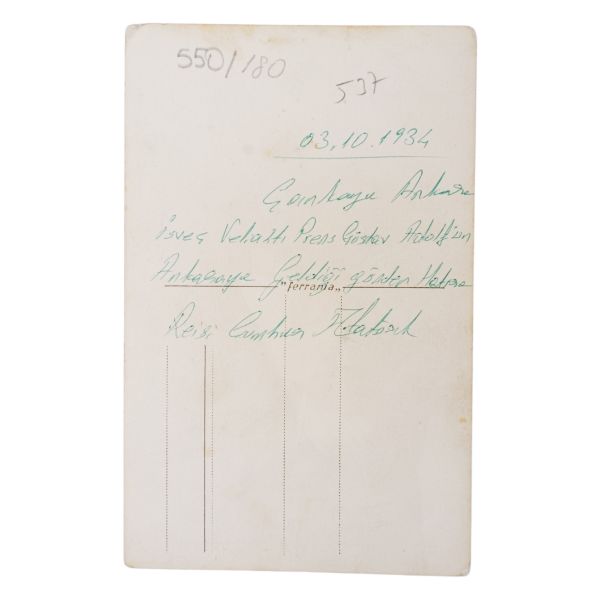 550/180
537
03.10.1934
Çankaya Ankara
İsveç Veliahtı Prens Güstav Adolf'un
Ankaraya Geldiği günden Hatıra
"ferrania"
Reisi Cumhur